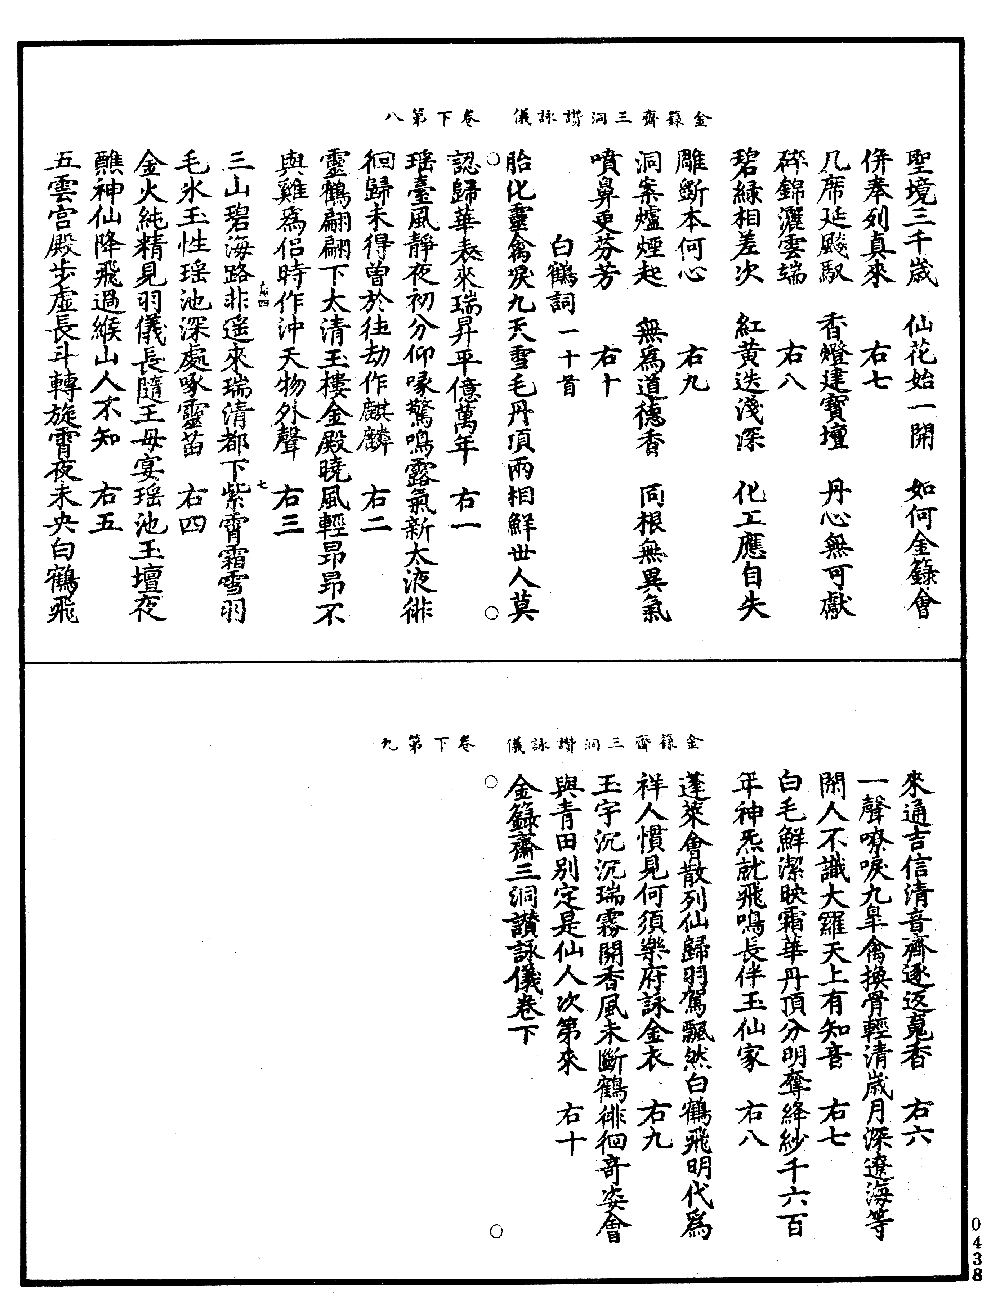 金籙齋三洞讚詠儀　卷下第八
聖境三千歲　仙花始一開　如何金籙會
併奉列真來　右七
几席延飈馭　香燈建寶壇　丹心無可獻
碎錦灑雲端　右八
碧緑相差次　紅黄迭淺深　化工應自失
雕斲本何心　右九
洞案爐煙起　無為道德香　同根無異氣
噴鼻更芬芳　右十
白鶴詞一十首
胎化靈禽唳九天雪毛丹頂兩相鮮世人莫
認歸華表來瑞昇平億萬年　右一
瑶臺風靜夜初分仰喙驚鳴露氣新太液徘
徊歸未得曽於往劫作麒麟　右二
靈鶴翩翩下太清玉樓金殿曉風輕昂昂不
與雞為侣時作沖天物外聲　右三
三山碧海路非遥來瑞清都下紫霄霜雪羽
毛氷玉性瑶池深處啄靈苗　右四
金火純精見羽儀長隨王母宴瑶池玉壇夜
醮神仙降飛過緱山人不知　右五
五雲宫殿步虛長斗轉旋霄夜未央白鶴飛
七
金籙齋三洞讚詠儀　卷下第九
來通吉信清音齊逐返䰟香　右六
一聲嘹唳九臯禽換骨輕清歲月深遼海等
閑人不識大羅天上有知音　右七
白毛鮮潔映霜華丹頂分明奪絳紗千六百
年神炁就飛鳴長伴玉仙家　右八
蓬萊會散列仙歸羽駕飄然白鶴飛明代為
祥人慣見何須樂府詠金衣　右九
玉宇沉沉瑞霧開香風未斷鶴徘徊竒姿會
與青田别定是仙人次第來　右十
金籙齋三洞讚詠儀卷下
0438